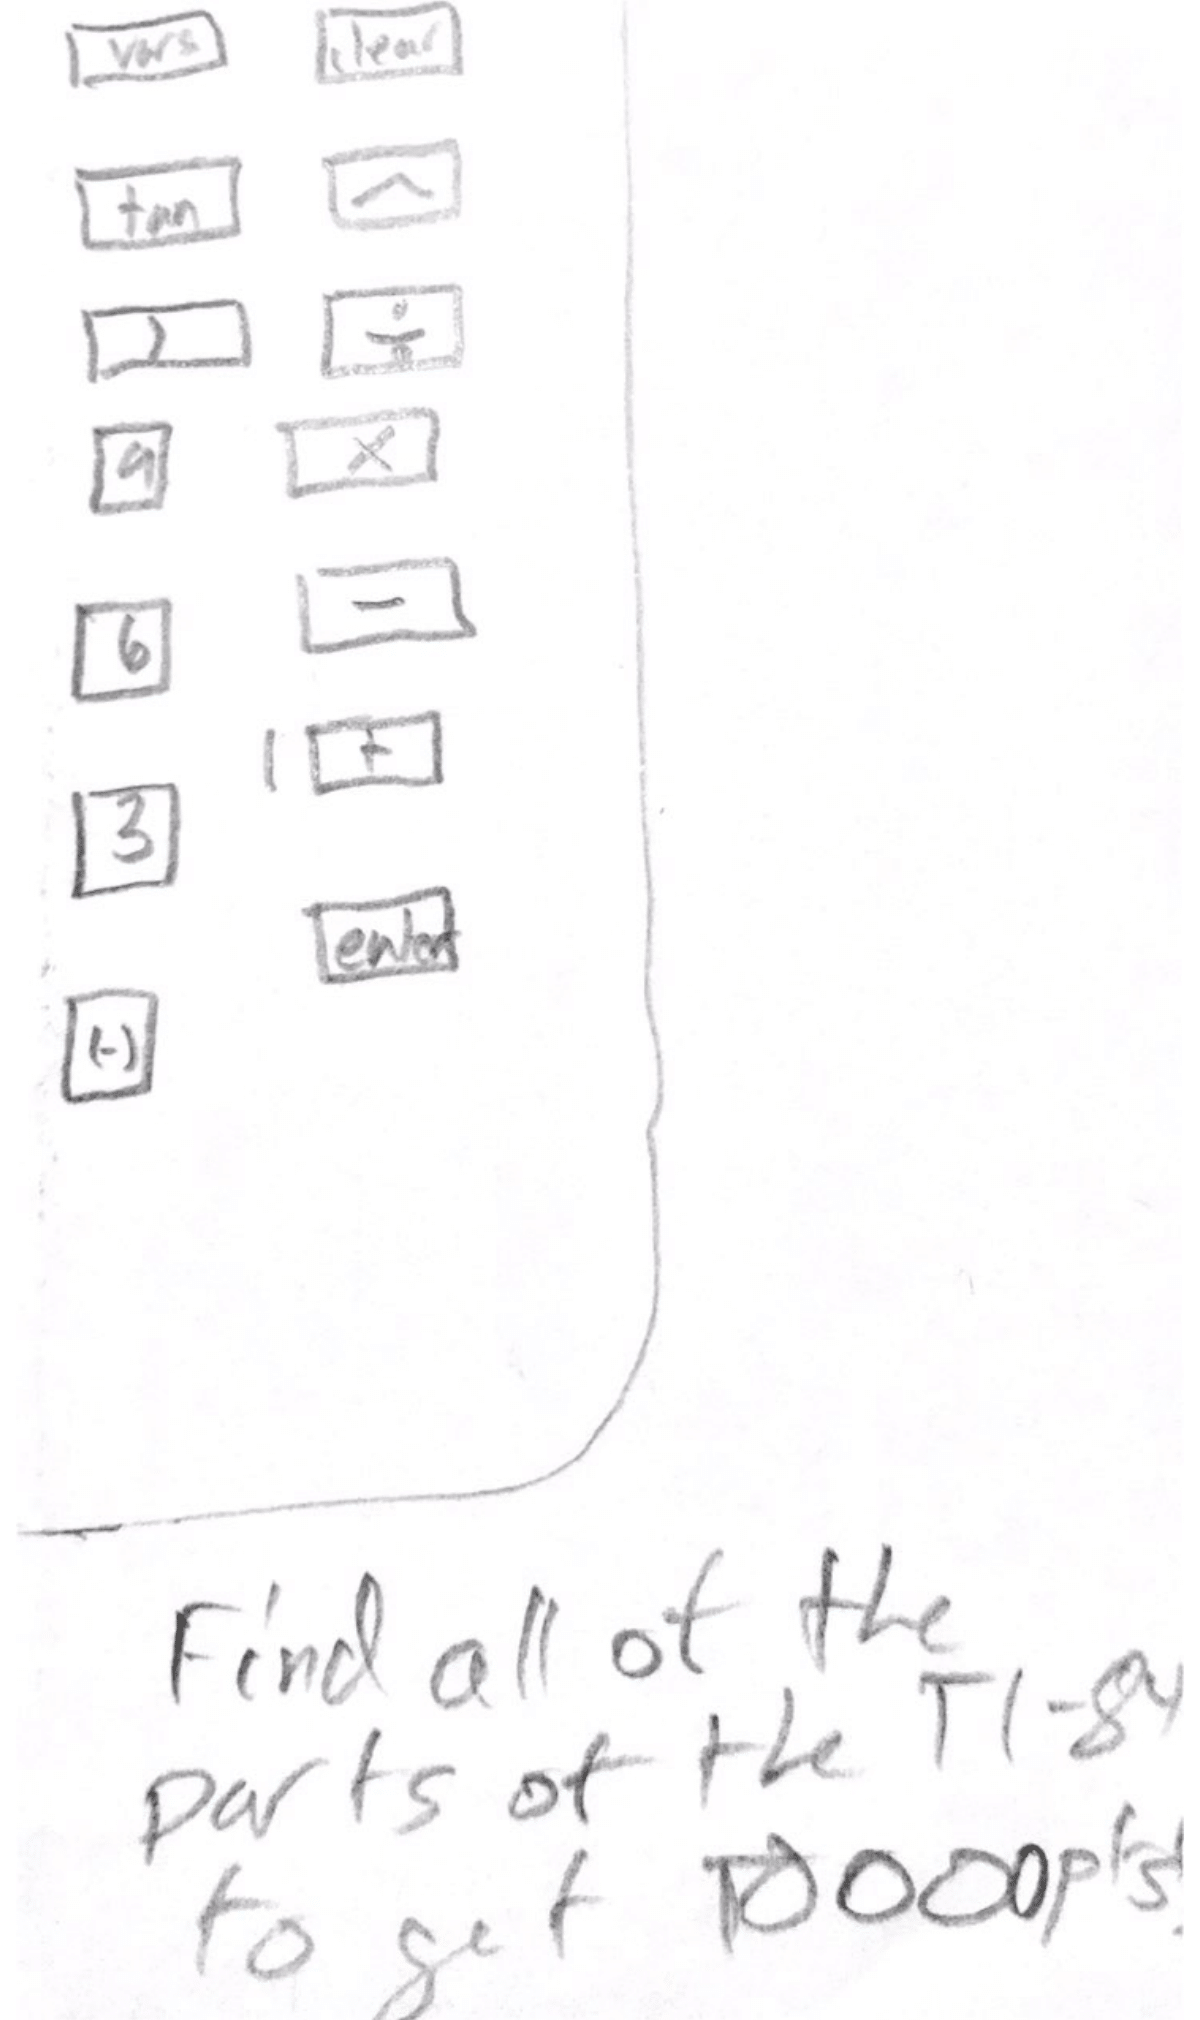 vars clear
tan ^
) ÷
9 ×
6 −
+
3
enter
(-)
Find all of the
parts of the TI-84
to get 10000pts!